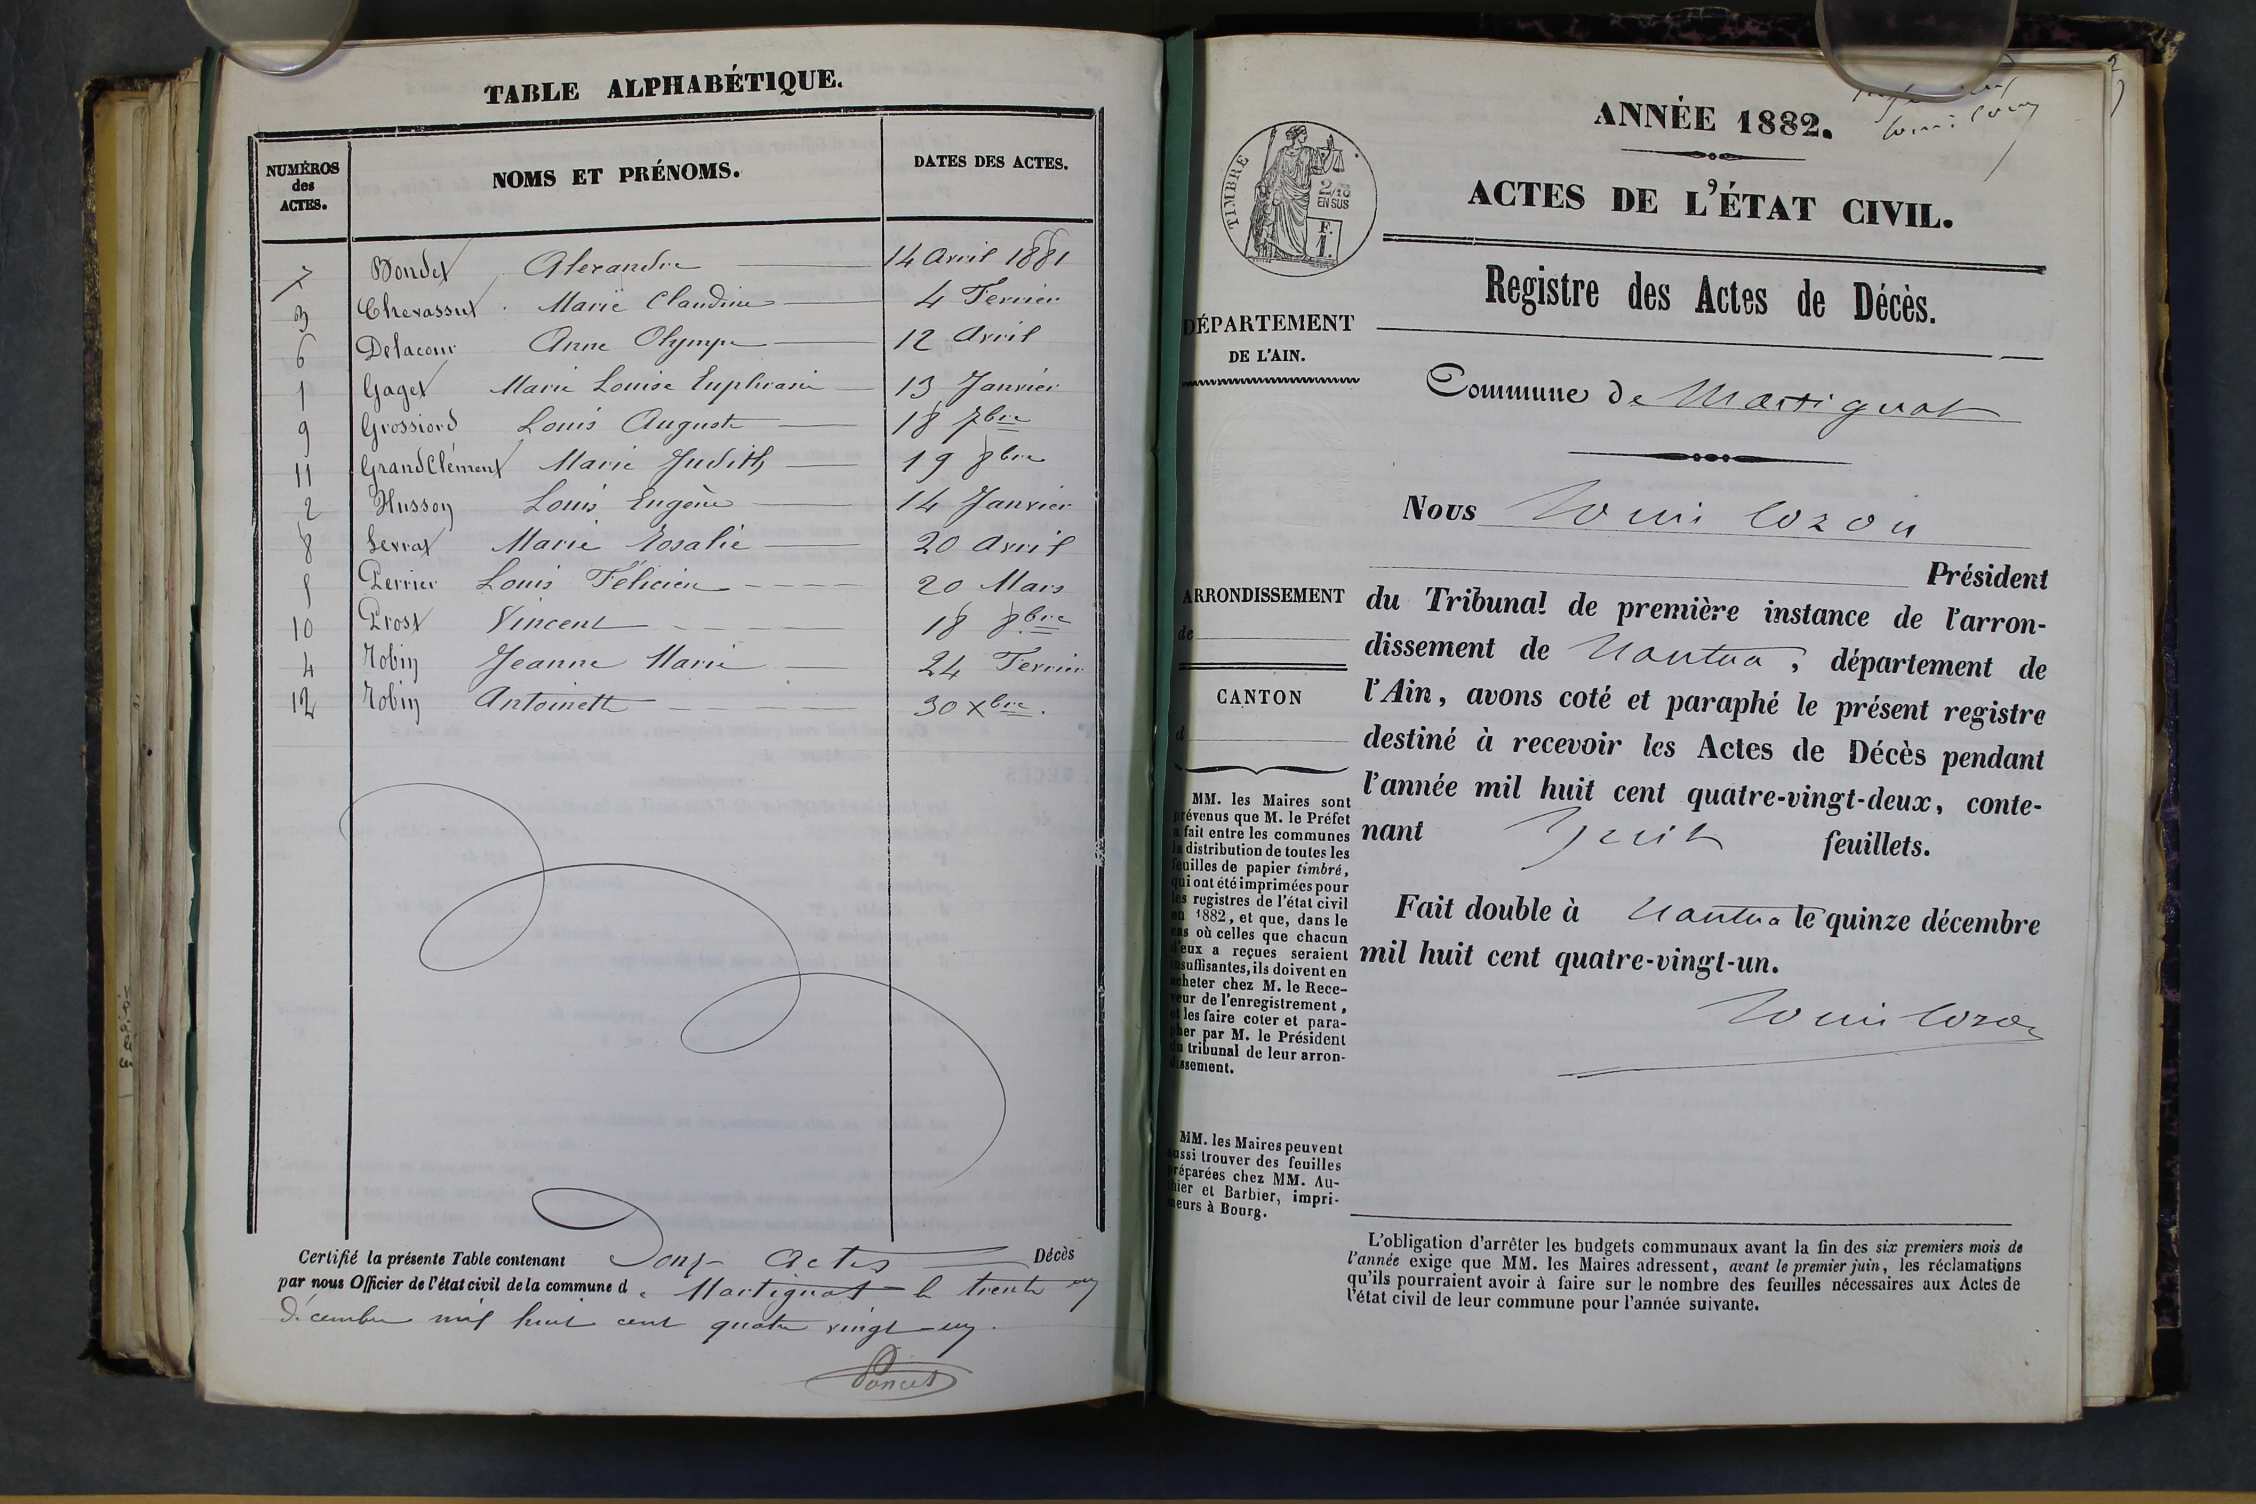 TABLE ALPHABÉTIQUE.
NUMÉROS
des
ACTES.
NOMS ET PRÉNOMS.
DATES DES ACTES.
7 Bondet Alexandre 14 Avril 1881
3 Chevassut Marie Claudine 4 Fevrier
6 Delacour Anne Olympe 12 Avril
1 Gaget Marie Louise Euphrasie 13 Janvier
9 Grossiord Louis Auguste 18 7bre
11 GrandClément Marie Judith 19 8bre
2 Husson Louis Eugène 14 Janvier
8 Levrat Marie Rosalie 20 Avril
5 Perrier Louis Félicien 20 Mars
10 Prost Vincent 18 8bre
4 Robin Jeanne Marie 24 Fevrier
12 Robin Antoinette 30 Xbre.
Certifié la présente Table contenant Douze Actes Décès
par nous Officier de l'état civil de la commune de Martignat le trente un
décembre mil huit cent quatre vingt-un.
Poncet
ANNÉE 1882.
Louis Cozon
TIMBRE
2/10
EN SUS
F.
1.
ACTES DE L'ÉTAT CIVIL.
Registre des Actes de Décès.
DÉPARTEMENT
DE L'AIN.
Commune de Martignat
Nous Louis Cozon
Président
ARRONDISSEMENT
de
CANTON
d
du Tribunal de première instance de l'arron-
dissement de Nantua, département de
l'Ain, avons coté et paraphé le présent registre
destiné à recevoir les Actes de Décès pendant
l'année mil huit cent quatre-vingt-deux, conte-
nant huit feuillets.
Fait double à Nantua le quinze décembre
mil huit cent quatre-vingt-un.
Louis Cozon
MM. les Maires sont
prévenus que M. le Préfet
a fait entre les communes
la distribution de toutes les
feuilles de papier timbré,
qui ont été imprimées pour
les registres de l'état civil
en 1882, et que, dans le
cas où celles que chacun
d'eux a reçues seraient
insuffisantes, ils doivent en
acheter chez M. le Rece-
veur de l'enregistrement,
et les faire coter et para-
pher par M. le Président
du tribunal de leur arron-
dissement.
MM. les Maires peuvent
aussi trouver des feuilles
préparées chez MM. Au-
thier et Barbier, impri-
meurs à Bourg.
L'obligation d'arrêter les budgets communaux avant la fin des six premiers mois de
l'année exige que MM. les Maires adressent, avant le premier juin, les réclamations
qu'ils pourraient avoir à faire sur le nombre des feuilles nécessaires aux Actes de
l'état civil de leur commune pour l'année suivante.